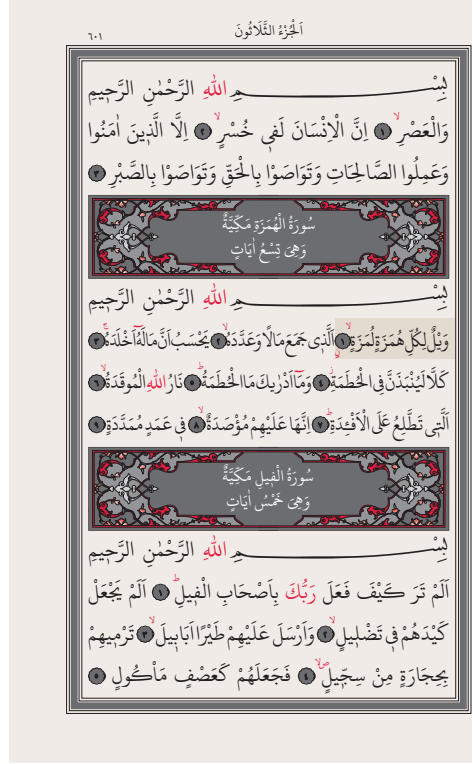 اَلْجُزْءُ الثَّلَاثُونَ
٦٠١
بِسْمِ اللهِ الرَّحْمٰنِ الرَّحٖيمِ
وَالْعَصْرِۙ ١ اِنَّ الْاِنْسَانَ لَفٖي خُسْرٍۙ ٢ اِلَّا الَّذٖينَ اٰمَنُوا
وَعَمِلُوا الصَّالِحَاتِ وَتَوَاصَوْا بِالْحَقِّ وَتَوَاصَوْا بِالصَّبْرِ ٣
سُورَةُ الْهُمَزَةِ مَكِّيَّةٌ
وَهِيَ تِسْعُ اٰيَاتٍ
بِسْمِ اللهِ الرَّحْمٰنِ الرَّحٖيمِ
وَيْلٌ لِكُلِّ هُمَزَةٍ لُمَزَةٍۙ ١ اَلَّذٖى جَمَعَ مَالًا وَعَدَّدَهُۙ ٢ يَحْسَبُ اَنَّ مَالَهُٓ اَخْلَدَهُۚ ٣
كَلَّا لَيُنْبَذَنَّ فِي الْحُطَمَةِۘ ٤ وَمَٓا اَدْرٰيكَ مَا الْحُطَمَةُۜ ٥ نَارُ اللهِ الْمُوقَدَةُۙ ٦
اَلَّتٖى تَطَّلِعُ عَلَى الْاَفْـِٔدَةِۜ ٧ اِنَّهَا عَلَيْهِمْ مُؤْصَدَةٌۙ ٨ فٖي عَمَدٍ مُمَدَّدَةٍ ٩
سُورَةُ الْفٖيلِ مَكِّيَّةٌ
وَهِيَ خَمْسُ اٰيَاتٍ
بِسْمِ اللهِ الرَّحْمٰنِ الرَّحٖيمِ
اَلَمْ تَرَ كَيْفَ فَعَلَ رَبُّكَ بِاَصْحَابِ الْفٖيلِۜ ١ اَلَمْ يَجْعَلْ
كَيْدَهُمْ فٖي تَضْلٖيلٍۙ ٢ وَاَرْسَلَ عَلَيْهِمْ طَيْرًا اَبَابٖيلَۙ ٣ تَرْمٖيهِمْ
بِحِجَارَةٍ مِنْ سِجّٖيلٍۙ ٤ فَجَعَلَهُمْ كَعَصْفٍ مَأْكُولٍ ٥